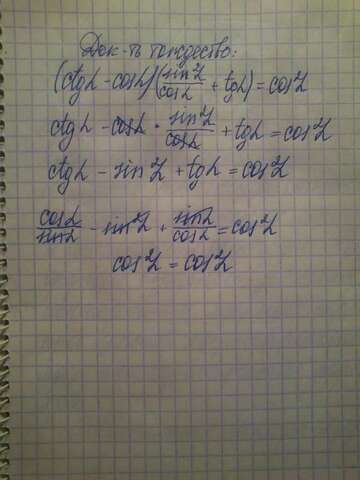 Док-ть тождество:
(ctgα - cosα)(sin²α/cosα + tgα) = cos²α
ctgα - cosα · sin²α/cosα + tgα = cos²α
ctgα - sin²α + tgα = cos²α
cosα/sinα - sin²α + sinα/cosα = cos²α
cos²α = cos²α